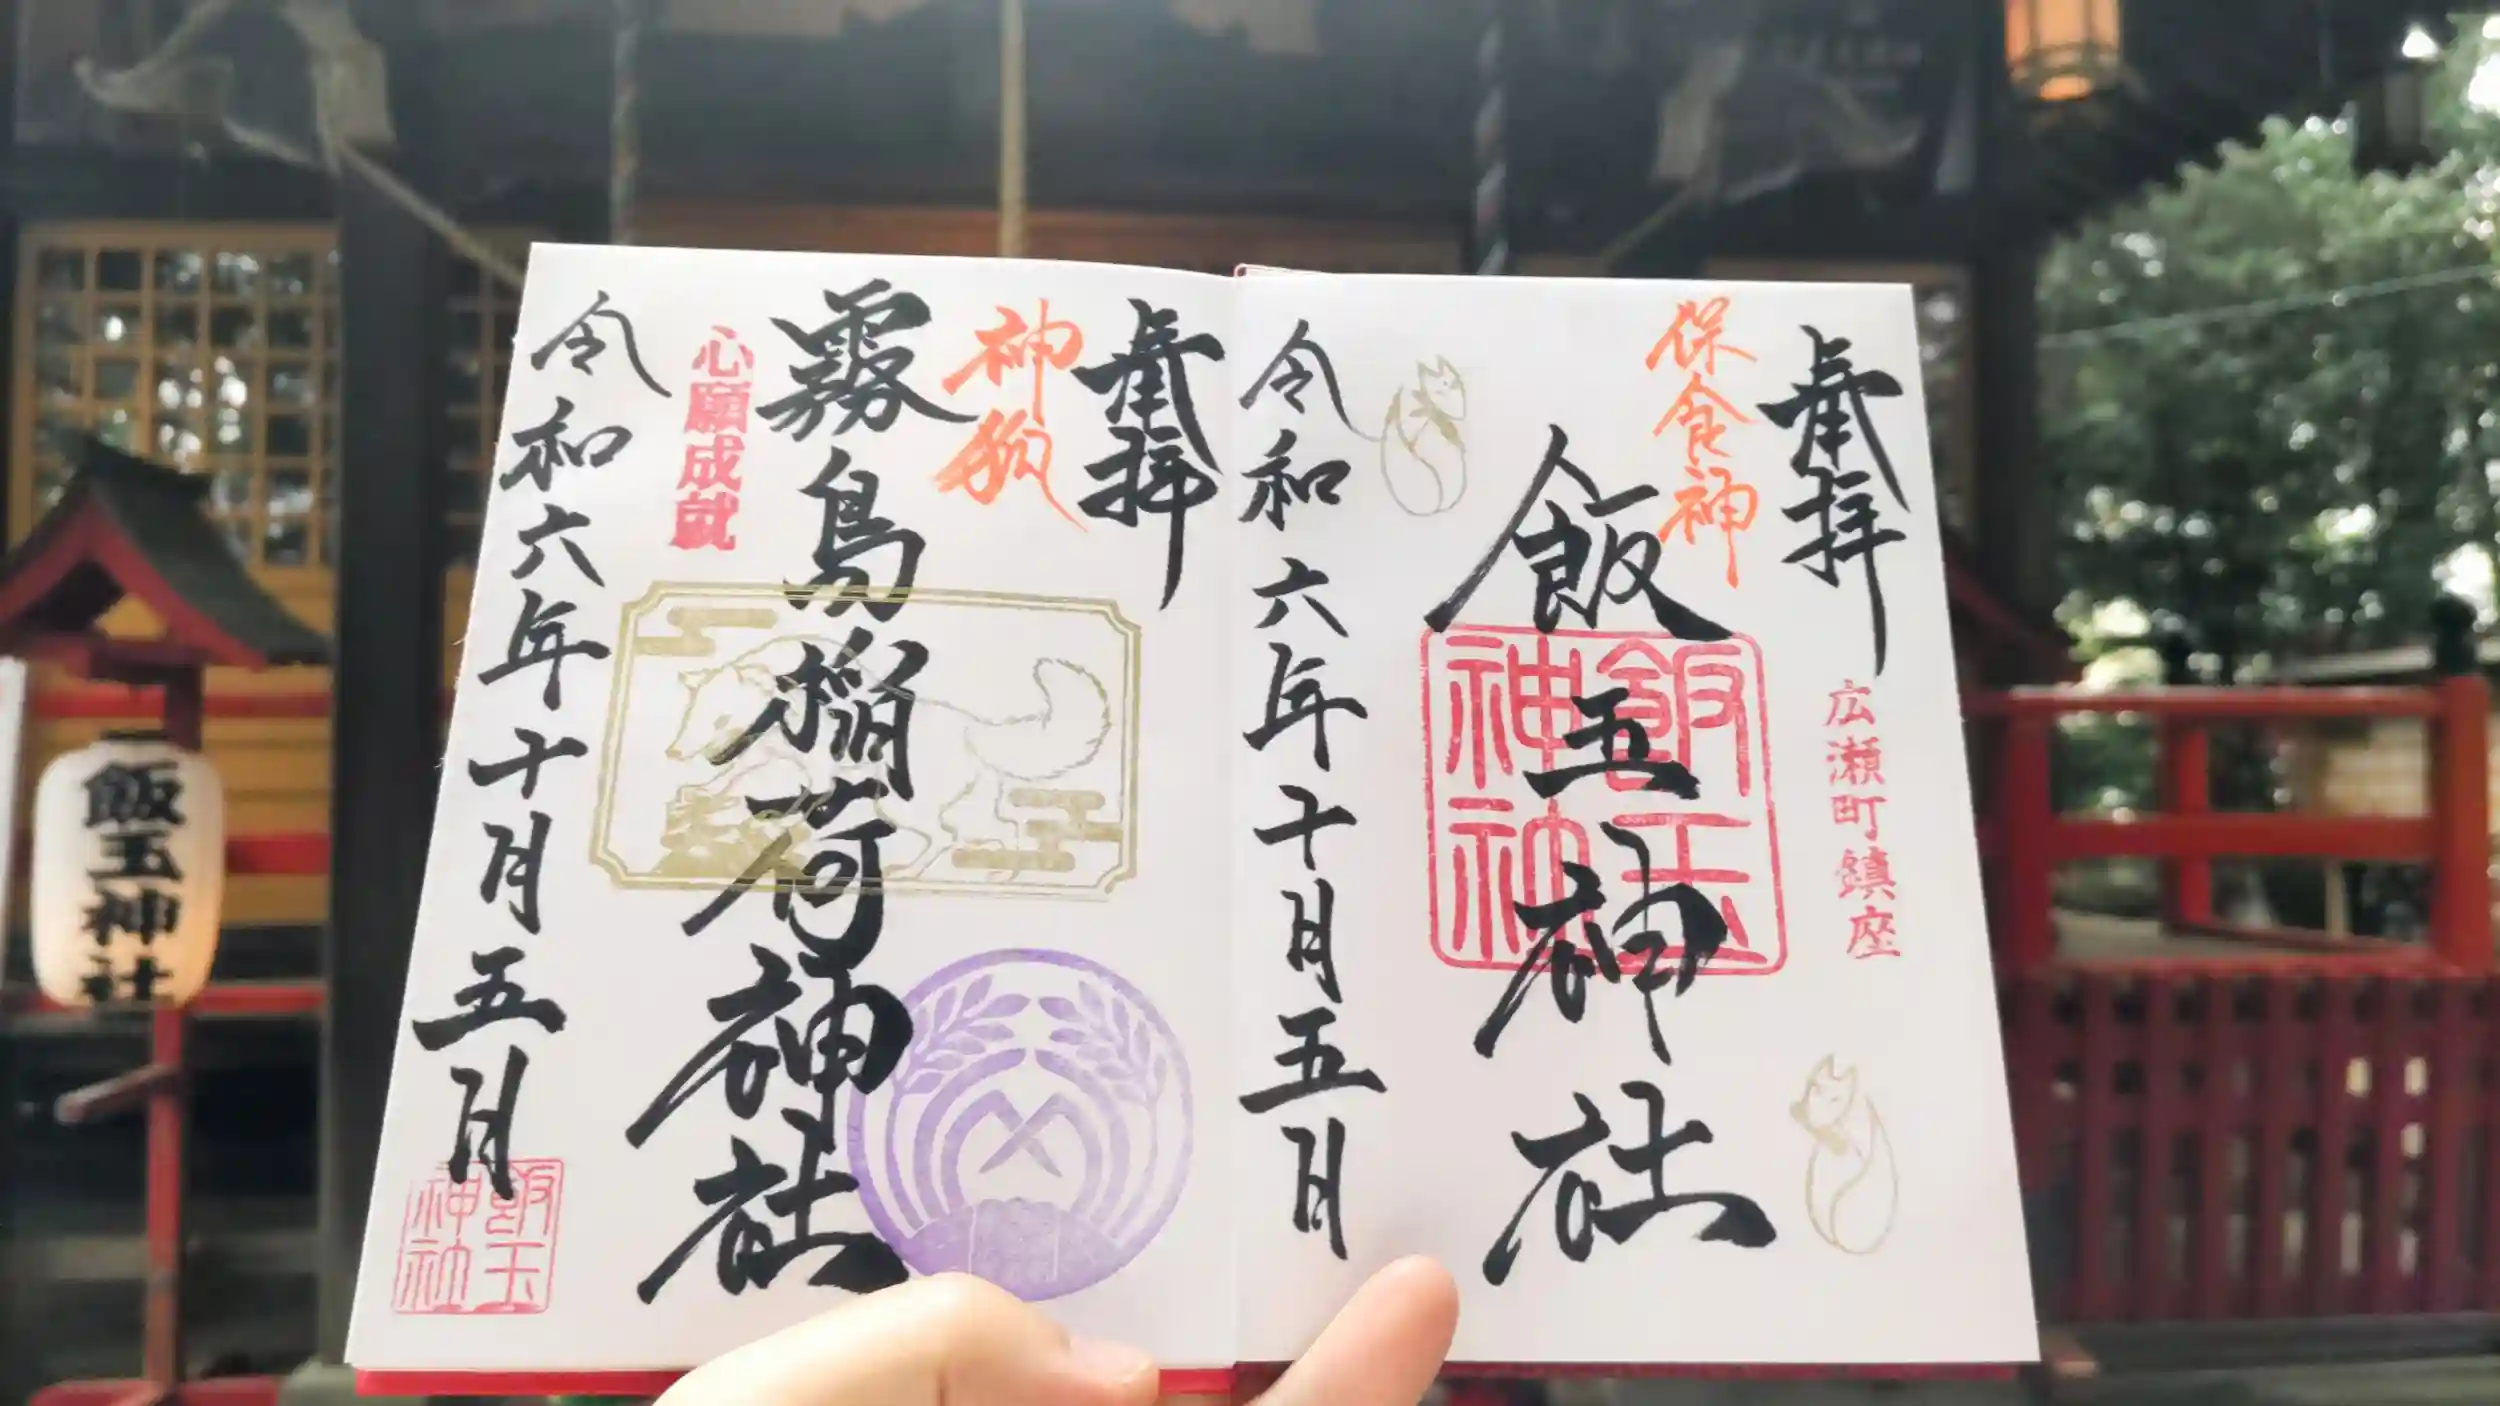 奉拝
保食神
広瀬町鎮座
飯玉神社
飯玉
神社
令和六年十月五日
奉拝
神狗
霧島稲荷神社
心願成就
令和六年十月五日
飯玉
神社
飯玉神社